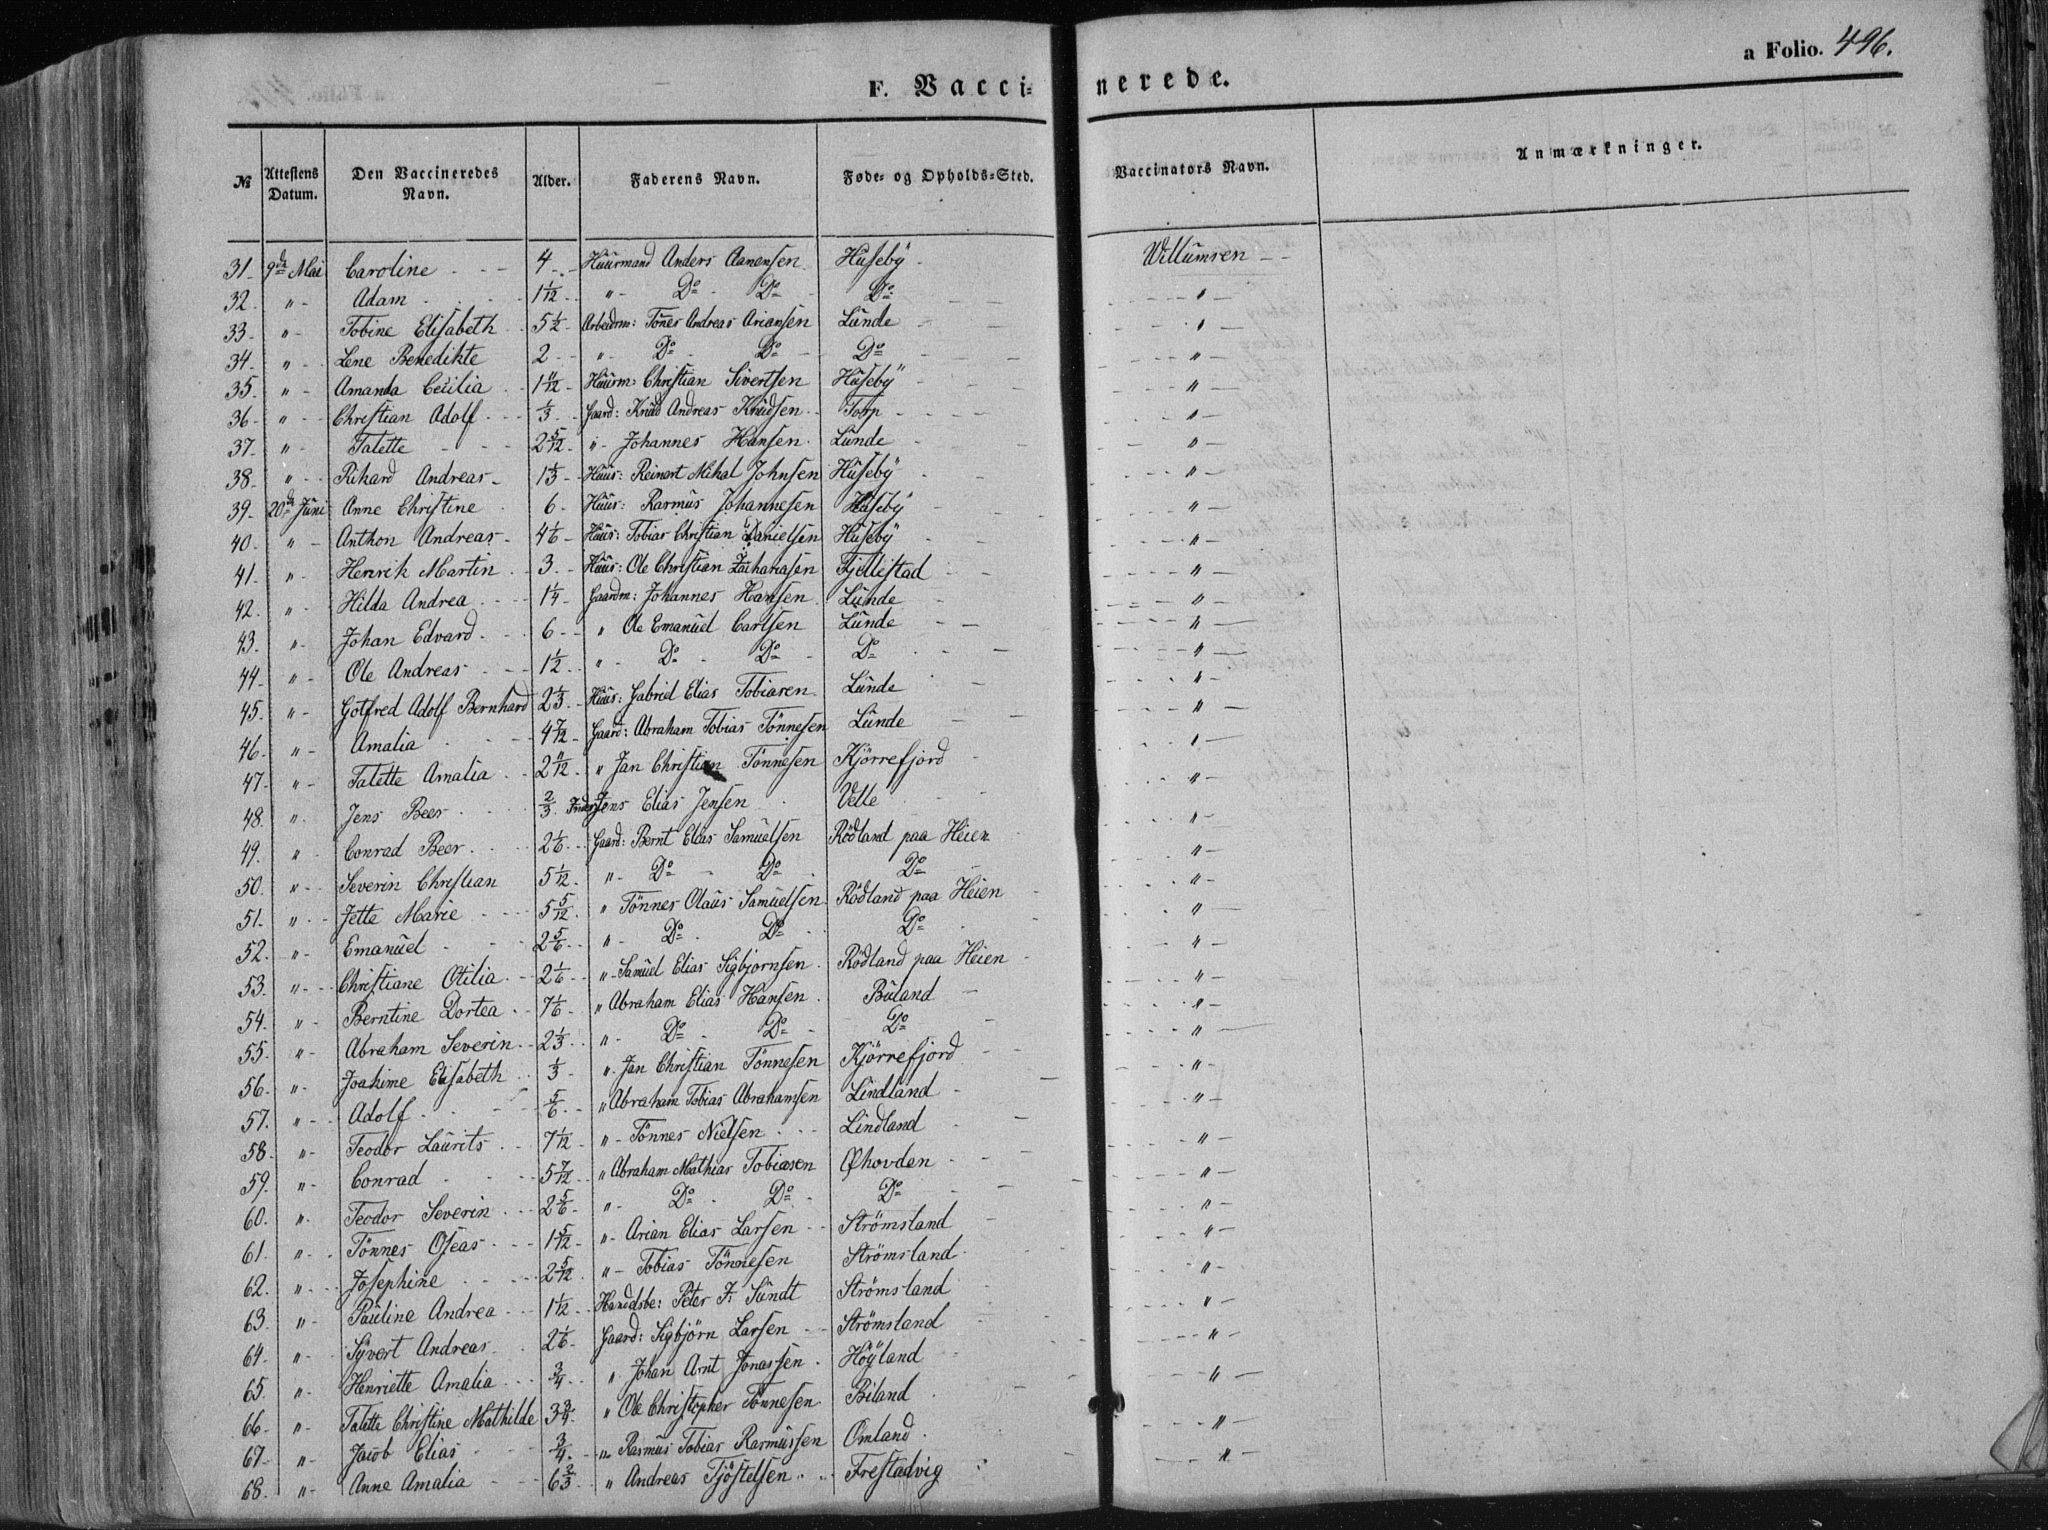 a Folio. 496.
F. Vacci- nerede.
№ Attestens Datum. Den Vaccineredes Navn. Alder. Faderens Navn. Føde- og Opholds-Sted. Vaccinators Navn. Anmærkninger.
31. 9de Mai Caroline 4 Huusmand Anders Aanensen Huseby Willumsen
32. " Adam 1 1/12 " Do Do Do "
33. " Tobine Elisabeth 5 1/2 Arbeidsm: Tönes Andreas Ariansen Lunde "
34. " Lene Benedikte 2 " Do Do Do "
35. " Amanda Cecilia 1 11/12 Huusm: Christian Sivertsen Huseby "
36. " Christian Adolf 1/3 Gaard: Knud Andreas Knudsen Torp "
37. " Talette 2 5/12 " Johannes Hansen Lunde "
38. " Rikard Andreas 1 1/3 Huus: Reinert Mikal Johnsen Huseby "
39. 20de Juni Anne Christine 6 Huus: Rasmus Johannesen Huseby "
40. " Anthon Andreas 4 1/6 Huus: Tobias Christian Danielsen Huseby "
41. " Henrik Martin 3 Huus: Ole Christian Zachariasen Fjellestad "
42. " Hilda Andrea 1 1/4 Gaardm: Johannes Hansen Lunde "
43. " Johan Edvard 6 " Ole Emanuel Carlsen Lunde "
44. " Ole Andreas 1 1/2 " Do Do Do "
45. " Gotfred Adolf Bernhard 2 1/3 Huus: Gabriel Elias Tobiasen Lunde "
46. " Amalia 4 7/12 Gaard: Abraham Tobias Tönnesen Lunde "
47. " Talette Amalia 2 11/12 " Jan Christian Tönnesen Kjörrefjord "
48. " Jens Beer 2/3 Jens Elias Jensen Velle "
49. " Conrad Beer 2 1/6 Gaard: Bernt Elias Samuelsen Rödland paa Heien "
50. " Severin Christian 5 1/12 " Do Do Do "
51. " Jette Marie 5 5/12 " Tönnes Olaus Samuelsen Rödland paa Heien "
52. " Emanuel 2 5/6 " Do Do Do "
53. " Christiane Otilia 2 1/6 " Samuel Elias Sigbjornsen Rödland paa Heien "
54. " Berntine Dortea 7 1/6 " Abraham Elias Hansen Buland "
55. " Abraham Severin 2 1/3 " Do Do Do "
56. " Joakime Elisabeth 1/3 " Jan Christian Tönnesen Kjörrefjord "
57. " Adolf 5/6 " Abraham Tobias Abrahamsen Lindland "
58. " Teodor Laurits 7 1/12 " Tönnes Nielsen Lindland "
59. " Conrad 5 7/12 " Abraham Mathias Tobiasen Øhovden "
60. " Teodor Severin 2 5/6 " Do Do Do "
61. " Tönnes Oseas 1 5/12 " Arian Elias Larsen Strömsland "
62. " Josephine 2 5/12 " Tobias Tönnesen Strömsland "
63. " Pauline Andrea 1 1/12 Handelsbe: Peter F: Sundt Strömsland "
64. " Syvert Andreas 2 1/6 Gaard: Sigbjörn Larsen Strömsland "
65. " Henriette Amalia 3/4 " Johan Arnt Jonassen Höyland "
66. " Talette Christine Mathilde 3 3/4 " Ole Christopher Tönnesen Biland "
67. " Jacob Elias 3/4 " Rasmus Tobias Rasmussen Omland "
68. " Anne Amalia 6 2/3 " Andreas Tjöstelsen Frestadvig